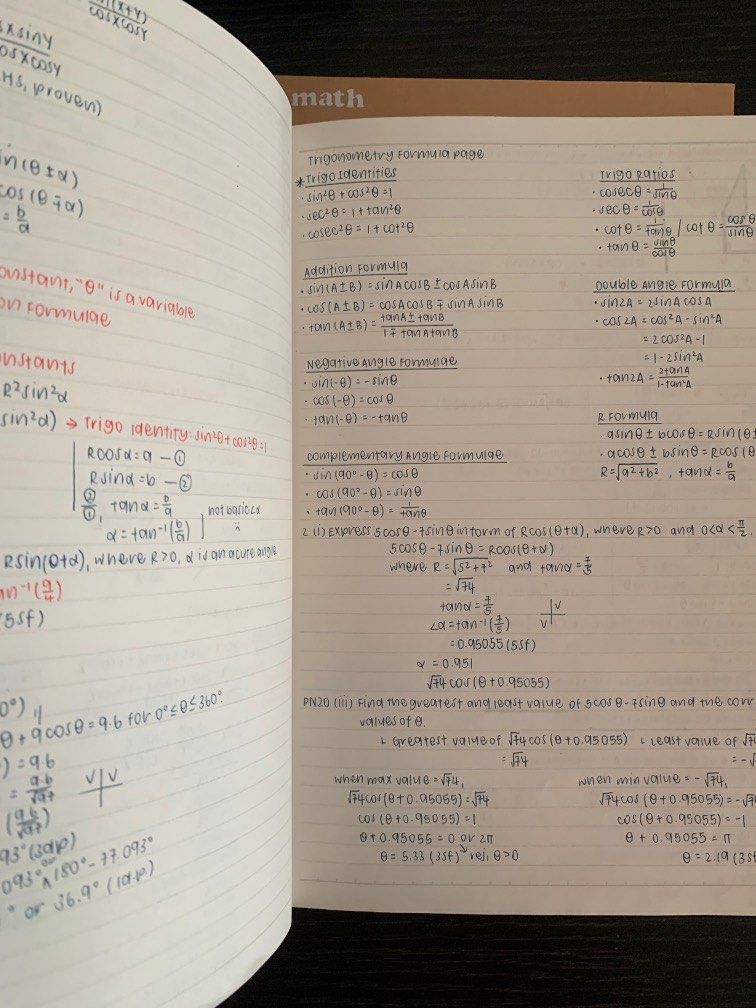 (x+y)
cosxcosy
sxsiny
osxcosy
HS, proven)
in(θ±α)
cos(θ∓α)
= b/a
onstant, "θ" is a variable
on Formulae
onstants
R²sin²α
sin²α) → Trigo Identity: sin²θ + cos²θ = 1
Rcosα = a — ①
Rsinα = b — ②
②/①, tanα = b/a
α = tan⁻¹(b/a)
not basic∠α
Rsin(θ+α), where R>0, α is an acute angle
an⁻¹(9/4)
(5sf)
0°)
θ + 9cosθ = 9.6 for 0° ≤ θ ≤ 360°.
) = 9.6
= 9.6/√97
V V
(9.6/√97)
93° (3d.p)
.093° or 180° - 77.093°
° or 36.9° (1d.p)
math
Trigonometry Formula page
*Trigo Identities
· sin²θ + cos²θ = 1
· sec²θ = 1 + tan²θ
· cosec²θ = 1 + cot²θ
Trigo Ratios
· cosecθ = 1/sinθ
· secθ = 1/cosθ
· cotθ = 1/tanθ / cotθ = cosθ/sinθ
· tanθ = sinθ/cosθ
Addition Formula
· sin(A±B) = sinAcosB ± cosAsinB
· cos(A±B) = cosAcosB ∓ sinAsinB
· tan(A±B) = tanA ± tanB / 1 ∓ tanAtanB
Double Angle Formula
· sin2A = 2sinAcosA
· cos2A = cos²A - sin²A
= 2cos²A - 1
= 1 - 2sin²A
· tan2A = 2tanA / 1 - tan²A
Negative Angle Formulae
· sin(-θ) = -sinθ
· cos(-θ) = cosθ
· tan(-θ) = -tanθ
R Formula
· asinθ ± bcosθ = Rsin(θ±
· acosθ ± bsinθ = Rcos(θ
R = √a²+b², tanα = b/a
Complementary Angle Formulae
· sin(90° - θ) = cosθ
· cos(90° - θ) = sinθ
· tan(90° - θ) = 1/tanθ
2 (i) Express 5cosθ - 7sinθ in form of Rcos(θ+α), where R>0 and 0<α<π/2.
5cosθ - 7sinθ = Rcos(θ+α)
where R = √5²+7² and tanα = 7/5
= √74
tanα = 7/5
∠α = tan⁻¹(7/5)
V
V
= 0.95055 (5sf)
α = 0.951
√74 cos(θ + 0.95055)
PN20 (iii) Find the greatest and least value of 5cosθ - 7sinθ and the corr
values of θ.
Greatest value of √74cos(θ + 0.95055)
= √74
Least value of √7
= -√
when max value = √74,
√74cos(θ + 0.95055) = √74
cos(θ + 0.95055) = 1
θ + 0.95055 = 0 or 2π
θ = 5.33 (3sf) rej, θ>0
when min value = -√74,
√74cos(θ + 0.95055) = -√7
cos(θ + 0.95055) = -1
θ + 0.95055 = π
θ = 2.19 (3sf